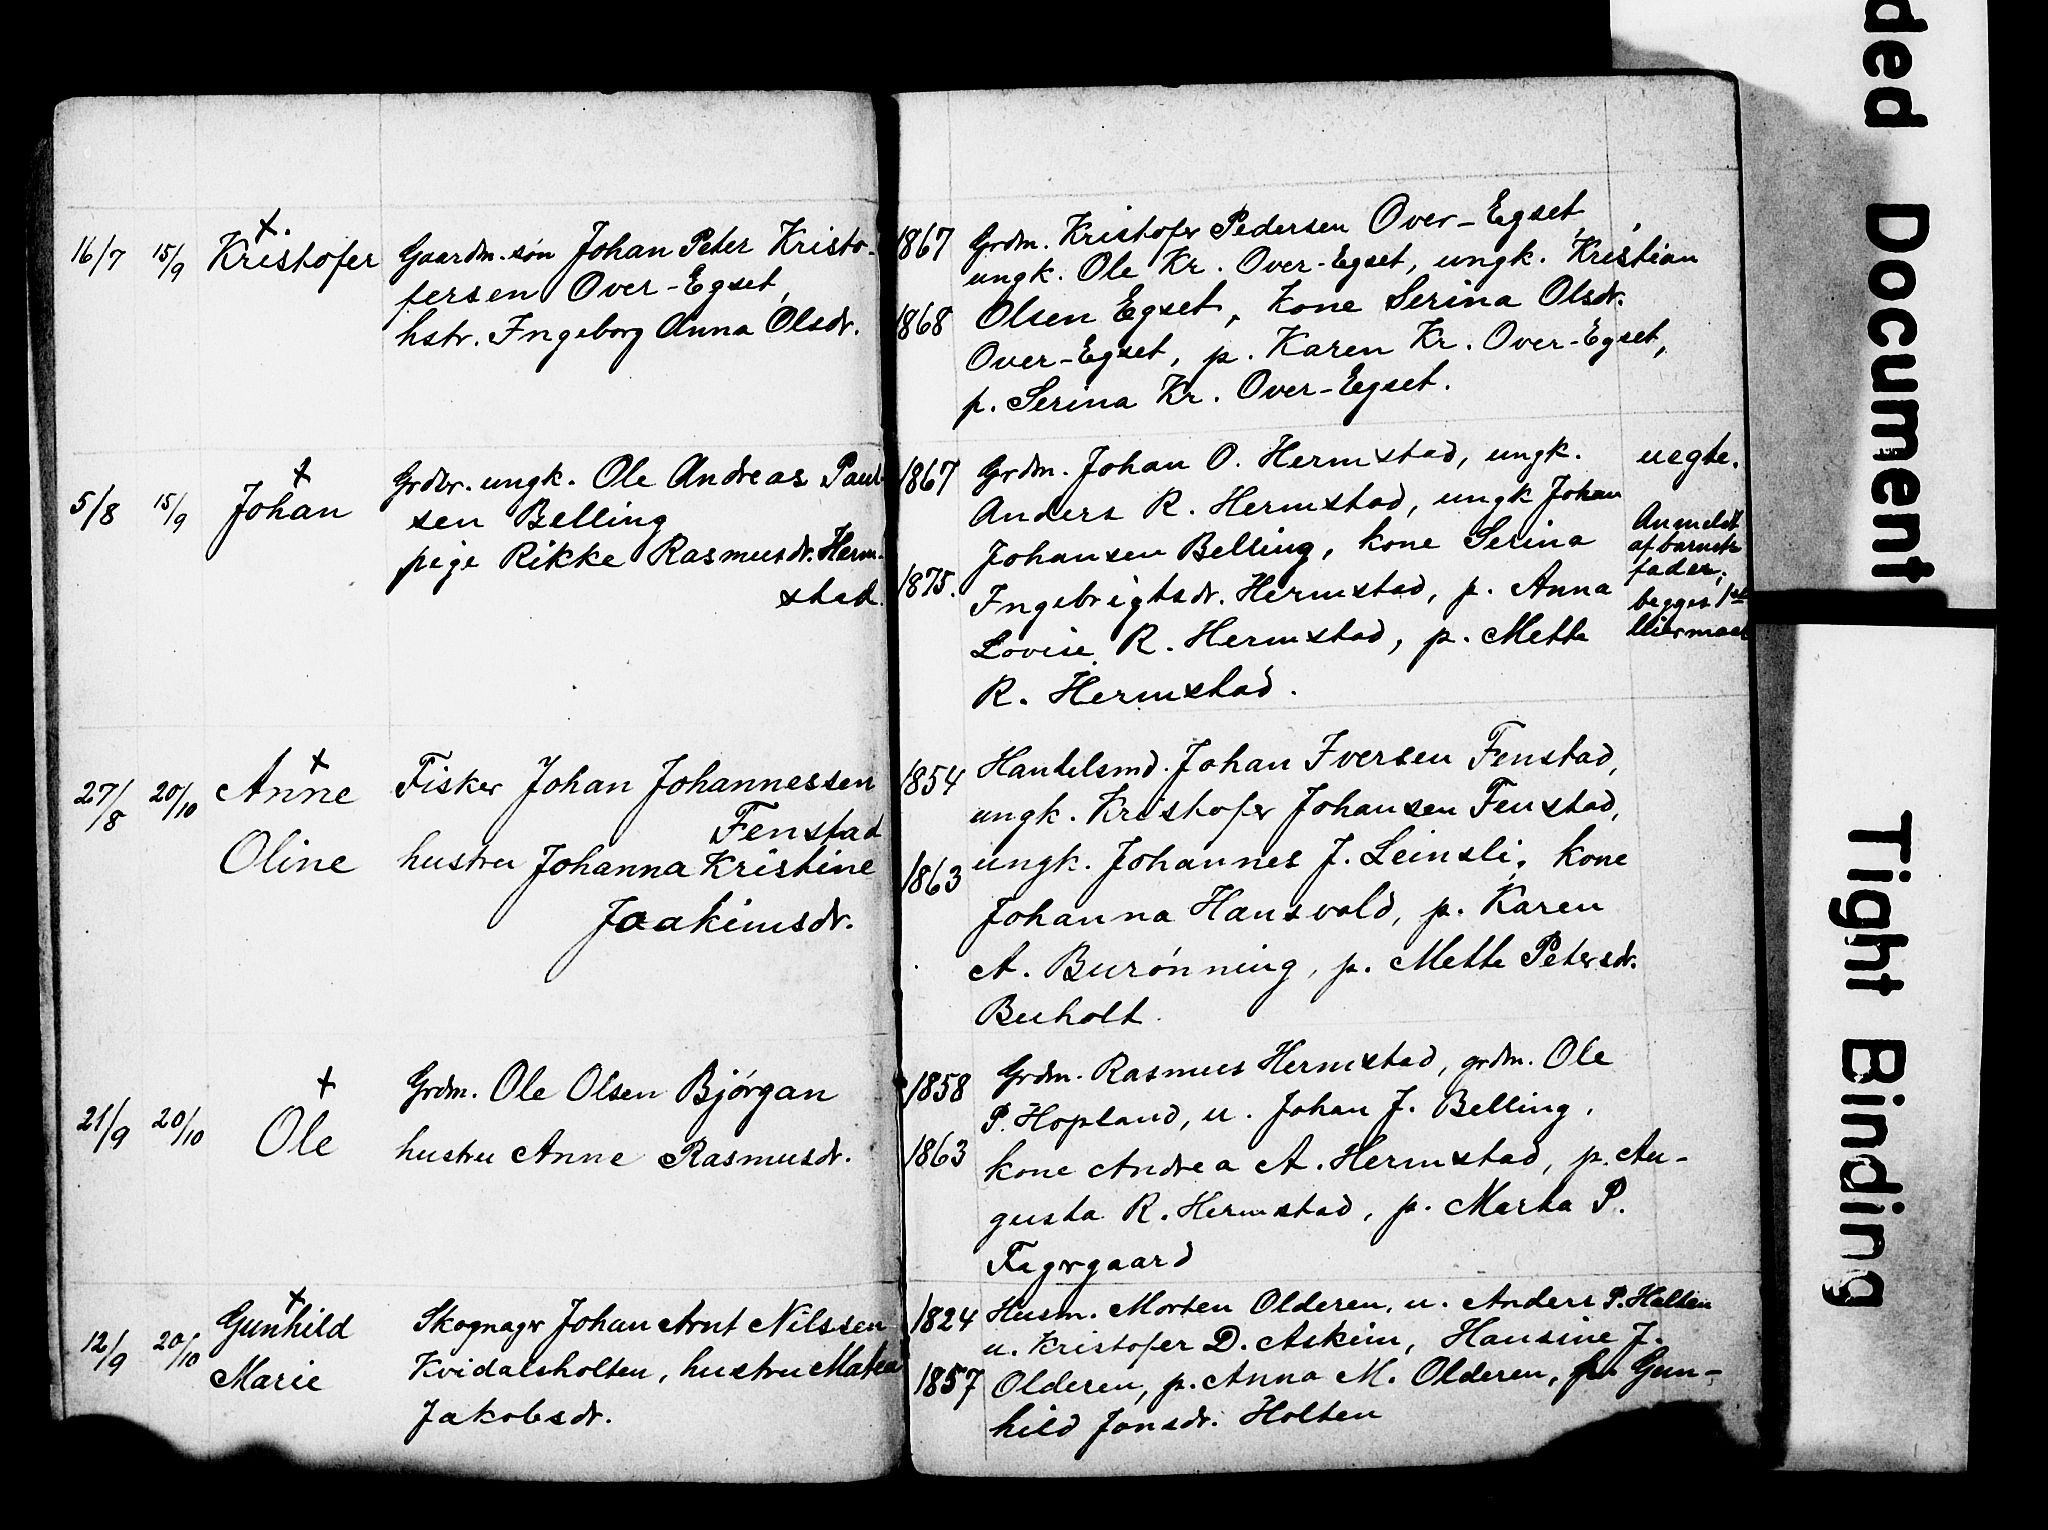 16/7 15/9 Kristofer Gaardm. søn Johan Peter Kristo-
fersen Over-Egset,
hstr. Ingeborg Anna Olsdr.
1867 Grdm. Kristofer Pedersen Over-Egset,
ungk. Ole Kr. Over-Egset, ungk. Kristian
1868 Olsen Egset, kone Serina Olsdr.
Over-Egset, p. Karen Kr. Over-Egset,
p. Serina Kr. Over-Egset.
5/8 15/9 Johan Grdbr. ungk. Ole Andreas Paul-
sen Belling
pige Rikke Rasmusdr. Herm-
stad.
1867 Grdm. Johan O. Hermstad, ungk.
Anders R. Hermstad, ungk Johan
Johansen Belling, kone Serina
1875. Ingebrigtsdr. Hermstad, p. Anna
Lovise R. Hermstad, p. Mette
R. Hermstad.
uegte.
Anmeldt
af barnets
fader,
begges 1ste
leiermaal
27/8 20/10 Anne
Oline
Fisker Johan Johannessen
Fenstad
hustru Johanna Kristine
Joakimsdr.
1854 Handelsmd. Johan Iversen Fenstad,
ungk. Kristofer Johansen Fenstad,
1863 ungk. Johannes J. Leinsli, kone
Johanna Hansvold, p. Karen
A. Burønning, p. Mette Petersdr.
Buholt.
21/9 20/10 Ole
Grdm. Ole Olsen Bjørgan
hustru Anne Rasmusdr.
1858 Grdm. Rasmus Hermstad, grdm. Ole
P. Hopland, u. Johan J. Belling,
1863 kone Andrea A. Hermstad, p. Au-
gusta R. Hermstad, p. Marta P.
Fagergaard
12/9 20/10 Gunhild
Marie
Skognagr Johan Arnt Nilssen
Kvidalsholten, hustru Matea
Jakobsdr.
1824 Husm. Morten Olderen, u. Anders P. Holten
u. Kristofer D. Askim, Hansine J.
1857 Olderen, p. Anna M. Olderen, p. Gun-
hild Jonsdr. Holten
ded Document
Tight Binding